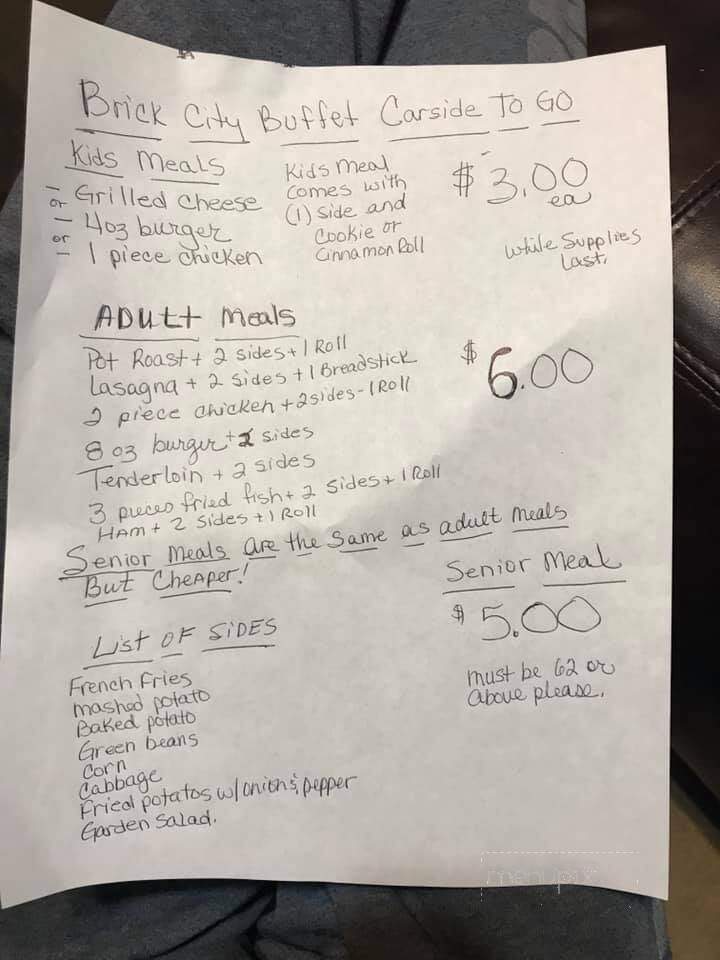 Brick City Buffet Carside To GO
Kids Meals
- Grilled cheese
or
- 4oz burger
or
- 1 piece chicken
Kids meal
comes with
(1) side and
Cookie or
Cinnamon Roll
$3.00
ea
while Supplies
Last,
ADULt Meals
Pot Roast + 2 sides + 1 Roll
Lasagna + 2 sides + 1 Breadstick
2 piece chicken + 2 sides - 1 Roll
8 oz burger + 2 sides
Tenderloin + 2 sides
3 pieces fried fish + 2 sides + 1 Roll
HAM + 2 Sides + 1 Roll
$6.00
Senior Meals are the same as adult meals
But Cheaper!
Senior Meal
$5.00
must be 62 or
above please.
List OF SiDES
French Fries
mashed potato
Baked potato
Green beans
Corn
Cabbage
Fried potatos w/onions & pepper
Garden Salad.
menupix